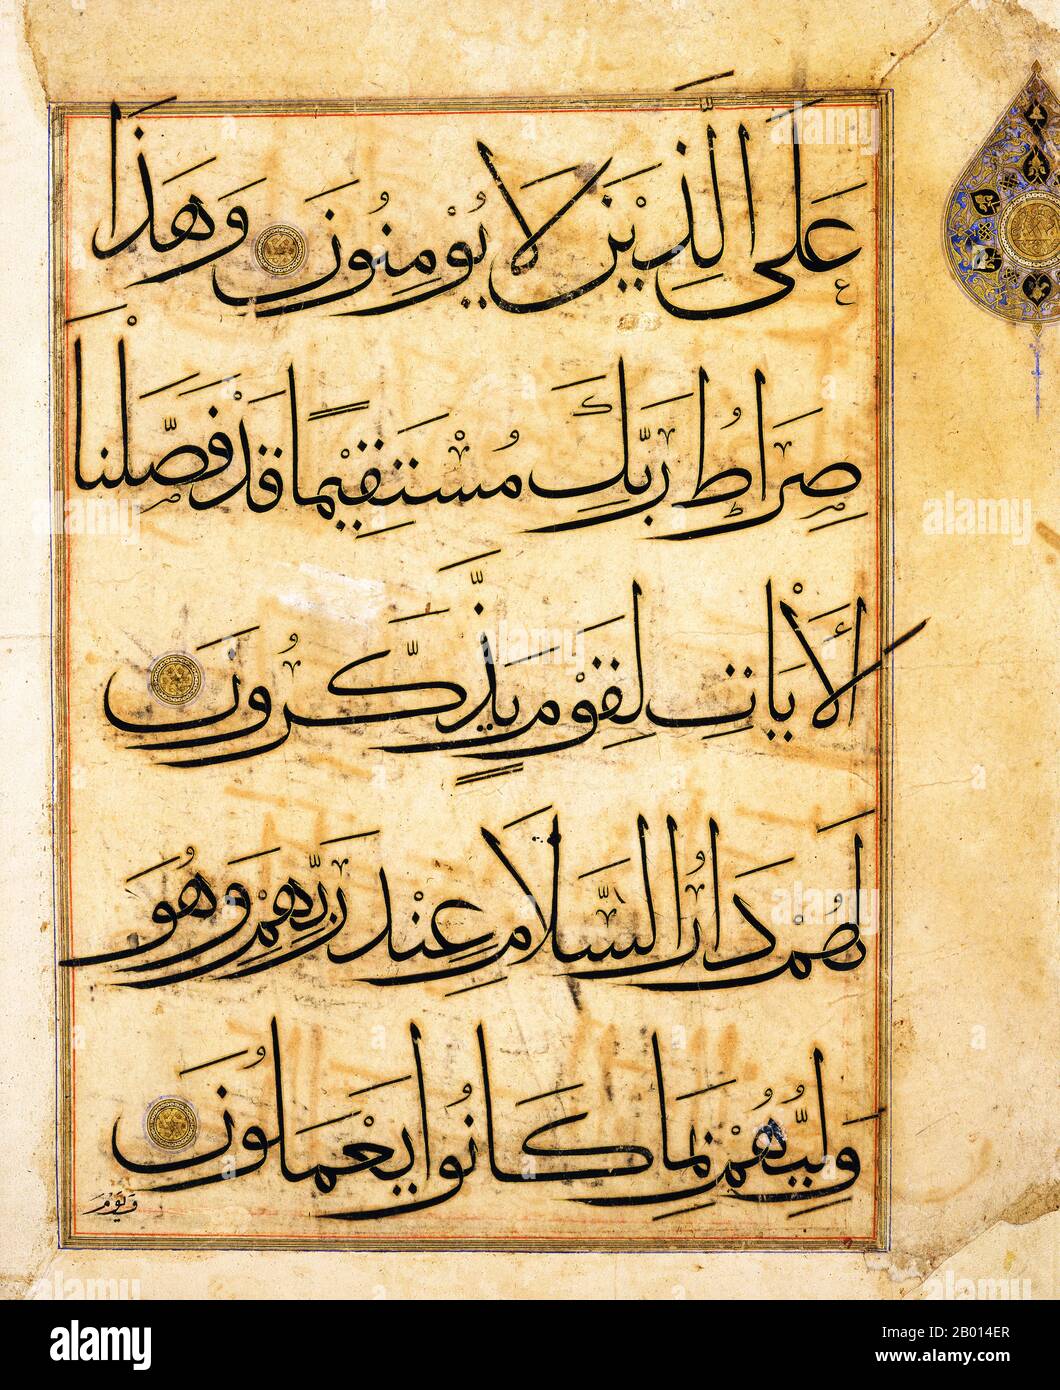 عَلَى الَّذِيْنَ لَا يُوْمِنُونَ وَهَذَا
صِرَاطُ رَبِّكَ مُسْتَقِيْمًا قَدْ فَصَّلْنَا
الْأَيَاتِ لِقَوْمٍ يَذَّكَّرُونَ
لَهُمْ دَارُ السَّلَامِ عِنْدَ رَبِّهِمْ وَهُوَ
وَلِيُّهُمْ بِمَا كَانُوا يَعْمَلُونَ
وَيَوْمَ
alamy
Image ID: 2B014ER
www.alamy.com